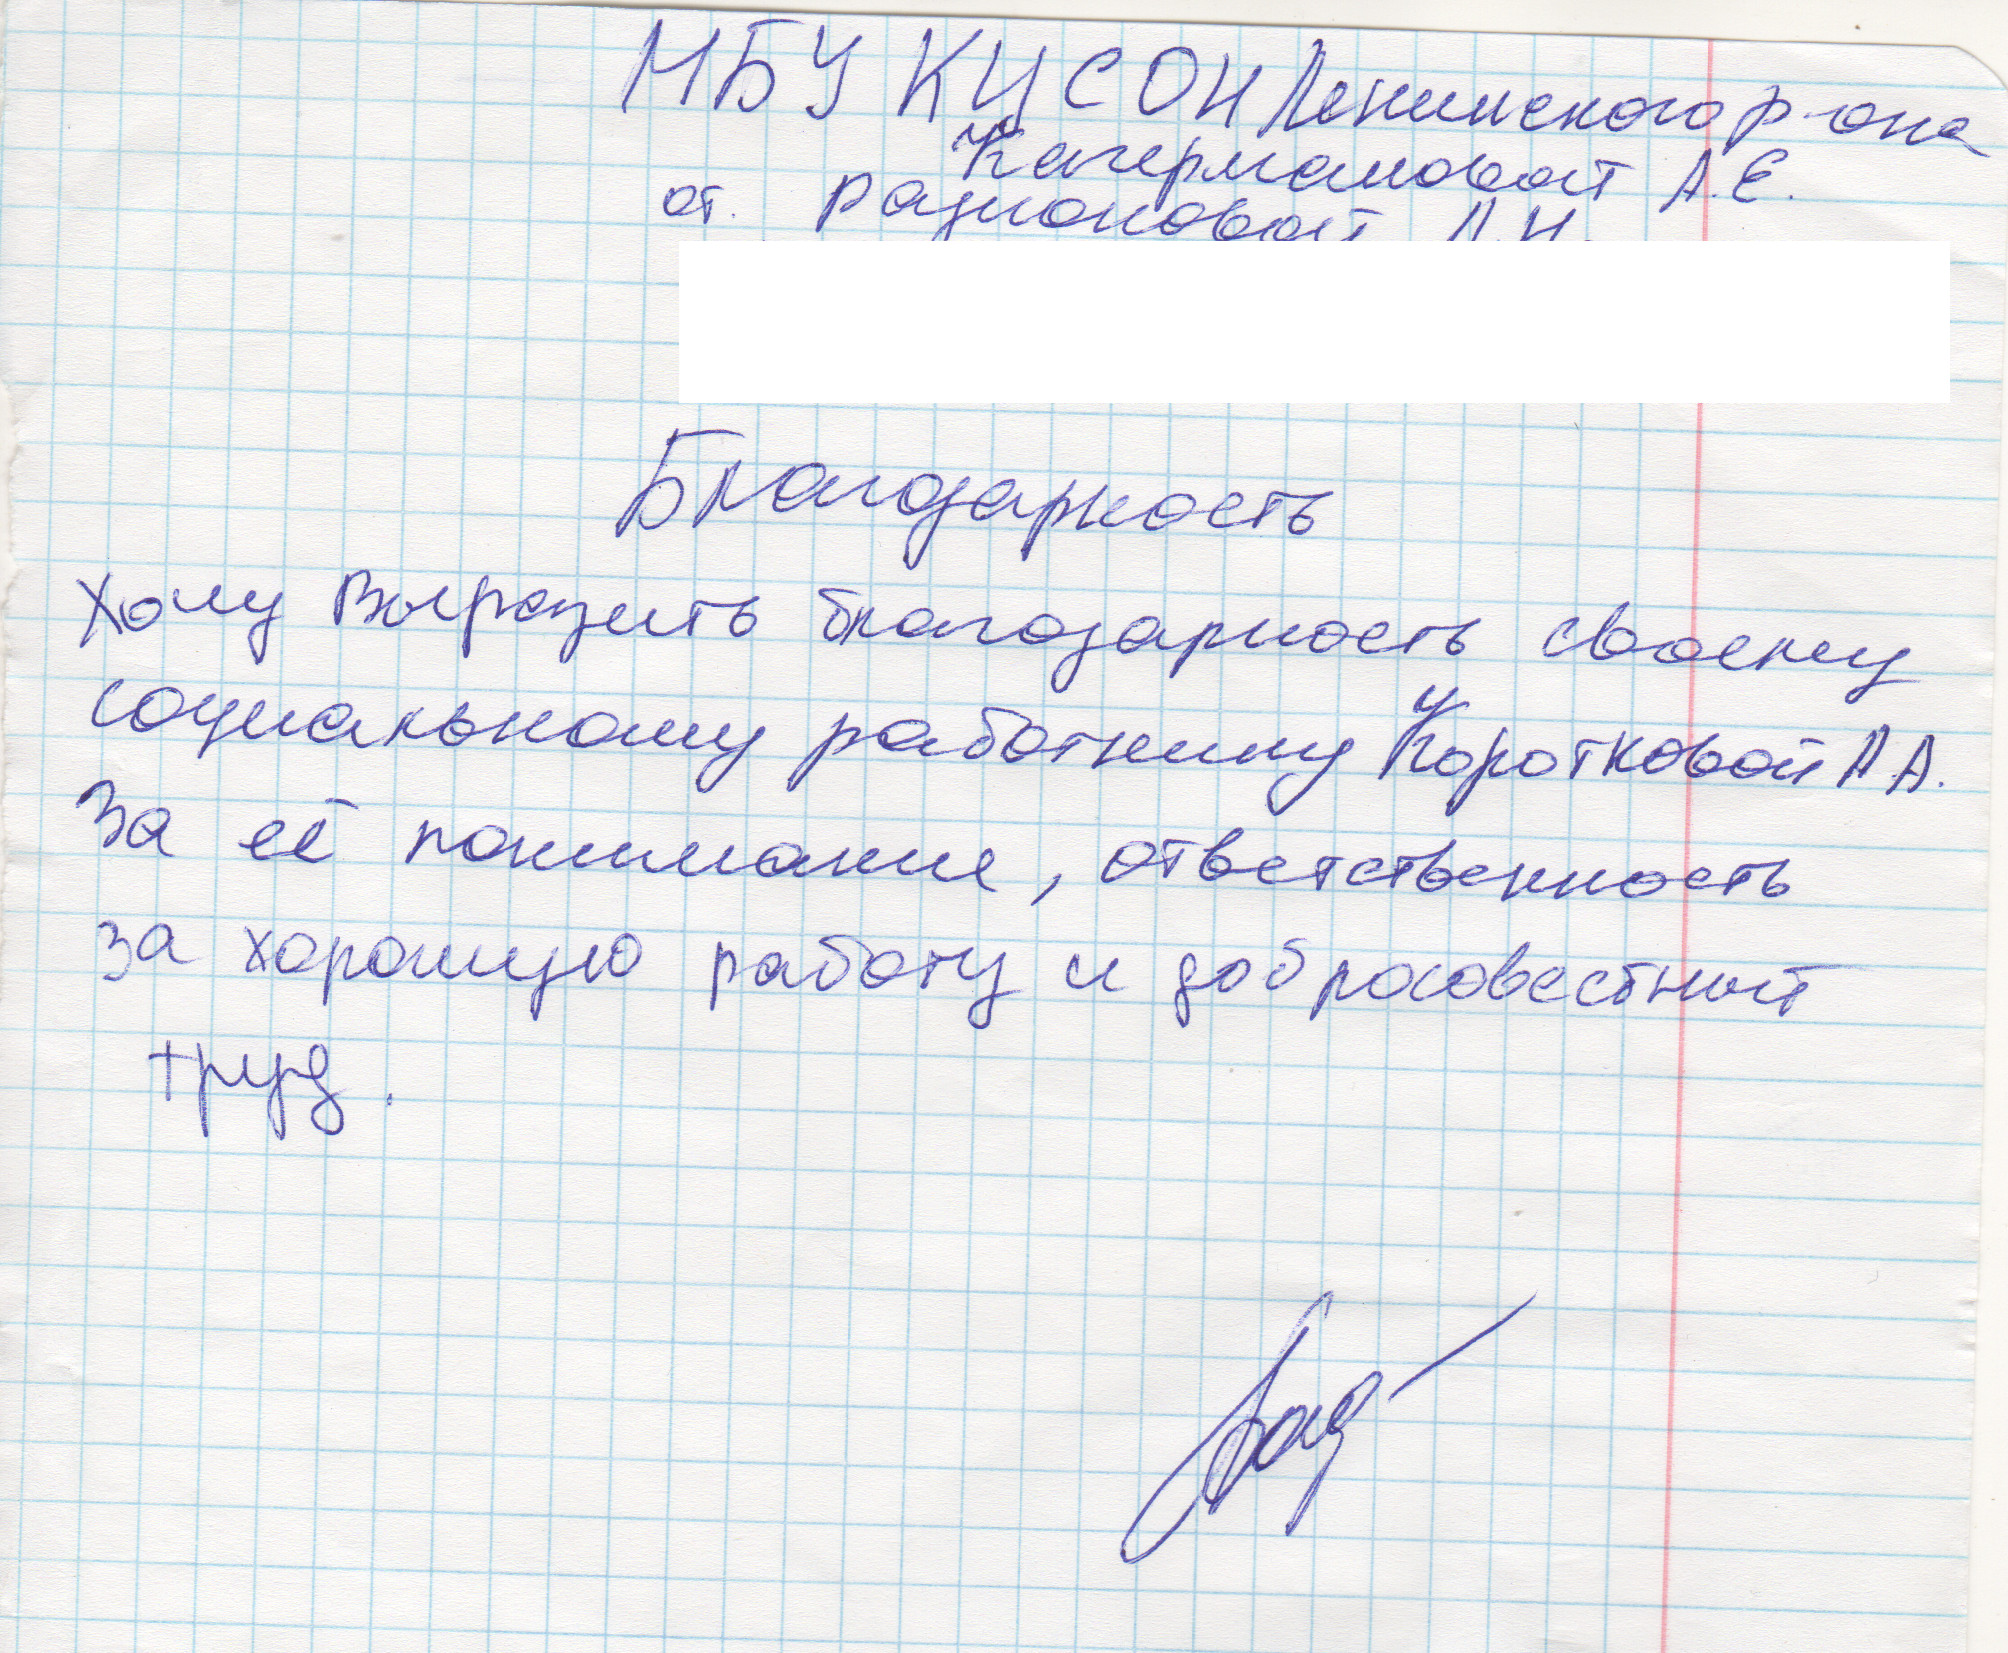 МБУ КЦСОН Ленинского р-она
Кагермановой А.Е.
от. Рационовой
Благодарность
Хочу выразить благодарность своему
социальному работнику Коротковой А.А.
За её понимание, ответственность
за хорошую работу и добросовестный
труд.